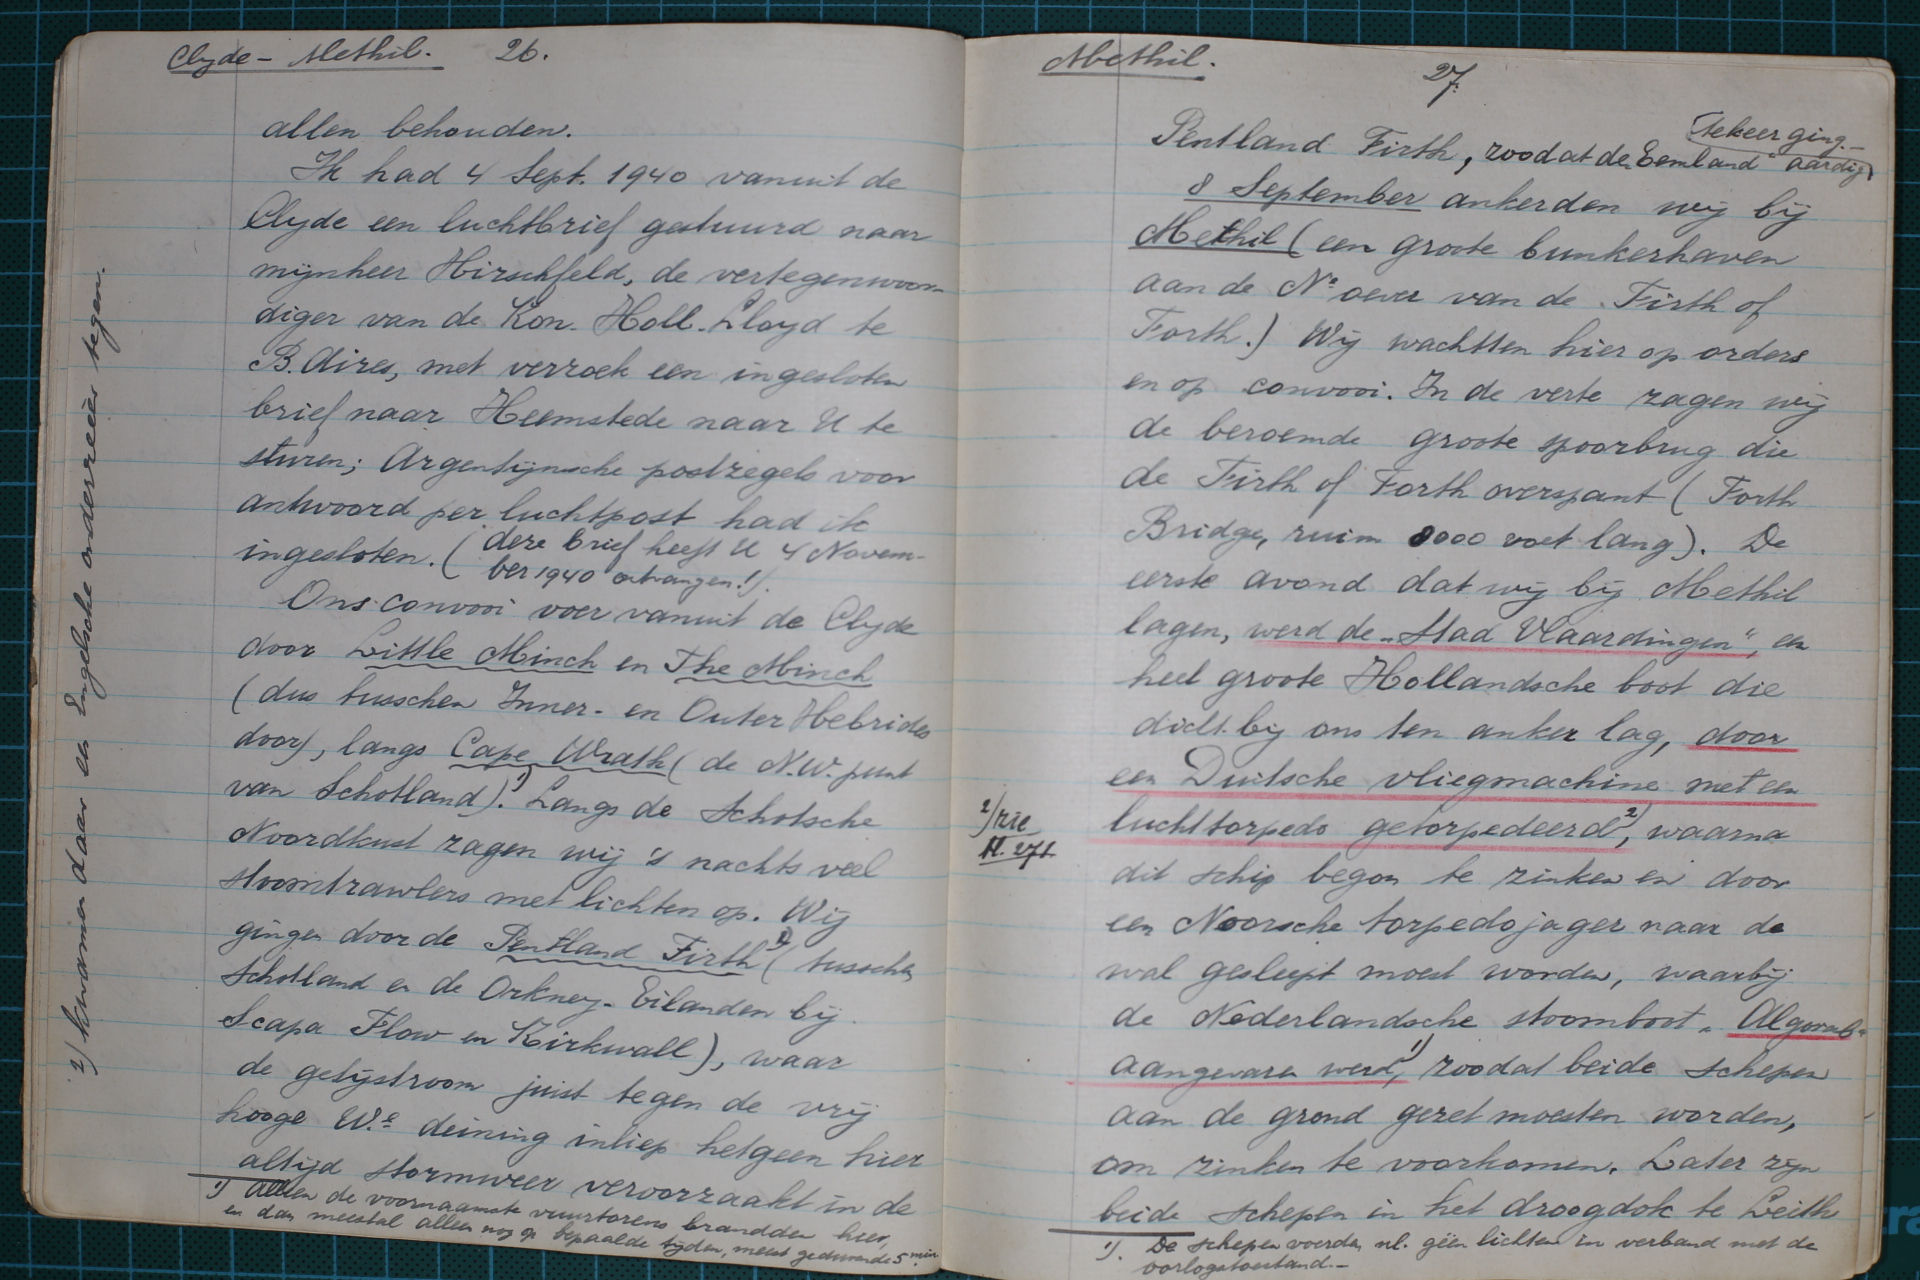 Clyde - Methil. 26.
allen behouden.
Ik had 4 Sept. 1940 vanuit de
Clyde een luchtbrief gestuurd naar
mijnheer Hirschfeld, de vertegenwoor-
diger van de Kon. Holl. Lloyd te
B. Aires, met verzoek een ingesloten
brief naar Heemstede naar U te
sturen; Argentijnsche postzegels voor
antwoord per luchtpost had ik
ingesloten. (deze brief heeft U 4 Novem-
ber 1940 ontvangen!).
Ons convooi voer vanuit de Clyde
door Little Minch en The Minch
(dus tusschen Inner- en Outer Hebrides
door), langs Cape Wrath (de N.W. punt
van Schotland).¹) Langs de Schotsche
Noordkust zagen wij 's nachts veel
stoomtrawlers met lichten op. Wij
gingen door de Pentland Firth ²) (tusschen
Schotland en de Orkney-Eilanden bij
Scapa Flow en Kirkwall), waar
de getijstroom juist tegen de vrij
hooge W.e deining inliep hetgeen hier
altijd stormweer veroorzaakt in de
¹) Alleen de voornaamste vuurtorens brandden hier,
en dan meestal alleen nog op bepaalde tijden, meest gedurende 5 min.
²) kwamen daar een Engelsche onderzeeër tegen.
Methil. 27.
Pentland Firth, zoodat de „Eemland" aardig
tekeer ging.-
8 September ankerden wij bij
Methil (een groote bunkerhaven
aan de Ne oever van de Firth of
Forth.) Wij wachtten hier op orders
en op convooi. In de verte zagen wij
de beroemde groote spoorbrug die
de Firth of Forth overspant (Forth
Bridge, ruim 8000 voet lang). De
eerste avond dat wij bij Methil
lagen, werd de „Stad Vlaardingen", een
heel groote Hollandsche boot die
dicht bij ons ten anker lag, door
een Duitsche vliegmachine met een
luchttorpedo getorpedeerd ²), waarna
dit schip begon te zinken en door
een Noorsche torpedojager naar de
wal gesleept moest worden, waarbij
de Nederlandsche stoomboot „Algorab"
aangevaren werd ¹), zoodat beide schepen
aan de grond gezet moesten worden,
om zinken te voorkomen. Later zijn
beide schepen in het droogdok te Leith
²) zie
bl. 271
¹). De schepen voerden nl. géén lichten in verband met de
oorlogstoestand.-